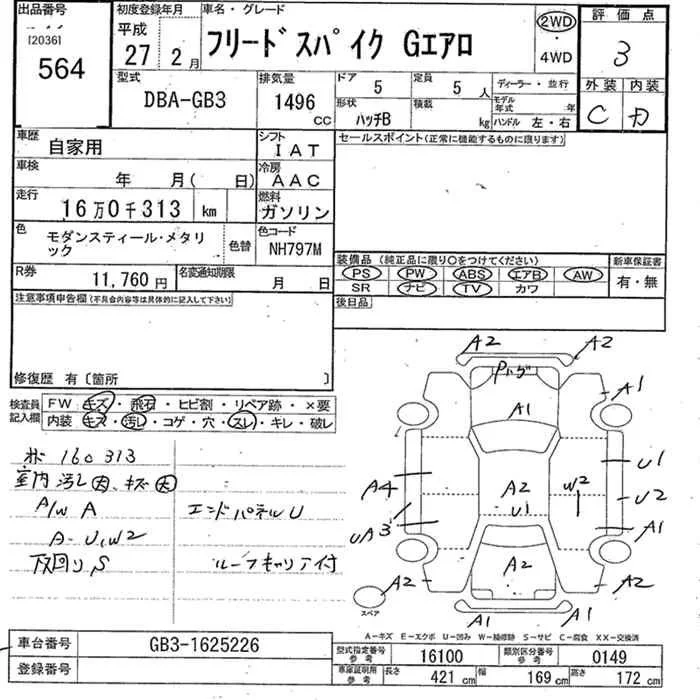 出品番号 初度登録年月 車名・グレード 2WD 評価点
I20361 平成
564 27 2月 フリードスパイク Gエアロ 4WD 3
型式 排気量 ドア 定員 ディーラー・並行 外装 内装
DBA-GB3 1496cc 5 5人 モデル年式 年 C D
形状 ハッチB 積載 kg ハンドル 左・右
車歴 自家用 シフト IAT セールスポイント(正常に機能するものに限ります)
車検 年 月( 日) 冷房 AAC
走行 16万0千313 km 燃料 ガソリン
色 モダンスティール・メタリック 色替 色コード NH797M
装備品 (純正品に限り○をつけてください) 新車保証書
PS PW ABS エアB AW 有・無
SR ナビ TV カワ
R券 11,760円 名変通知期限 月 日
後日品
注意事項申告欄(不具合内容等は具体的に記入して下さい)
修復歴 有〔箇所 〕
検査員記入欄 FW キズ・飛石・ヒビ割・リペア跡・×要
内装 キズ・汚レ・コゲ・穴・スレ・キレ・破レ
160313
室内汚レ大、キズ大
A/W A エンドパネルU
A-U,W2
下回りS ルーフキャリア付
A2 A2
Pハゲ
A1 A1
A4 A2 W2 U1
U1 U2
UA3 A1
A2 A2 A2
スペア
A1 A1
A-キズ E-エクボ U-凹み W-補修跡 S-サビ C-腐食 XX-交換済
車台番号 GB3-1625226 型式指定番号参考 16100 類別区分番号参考 0149
登録番号 車庫証明用参考 長さ 421cm 幅 169cm 高さ 172cm